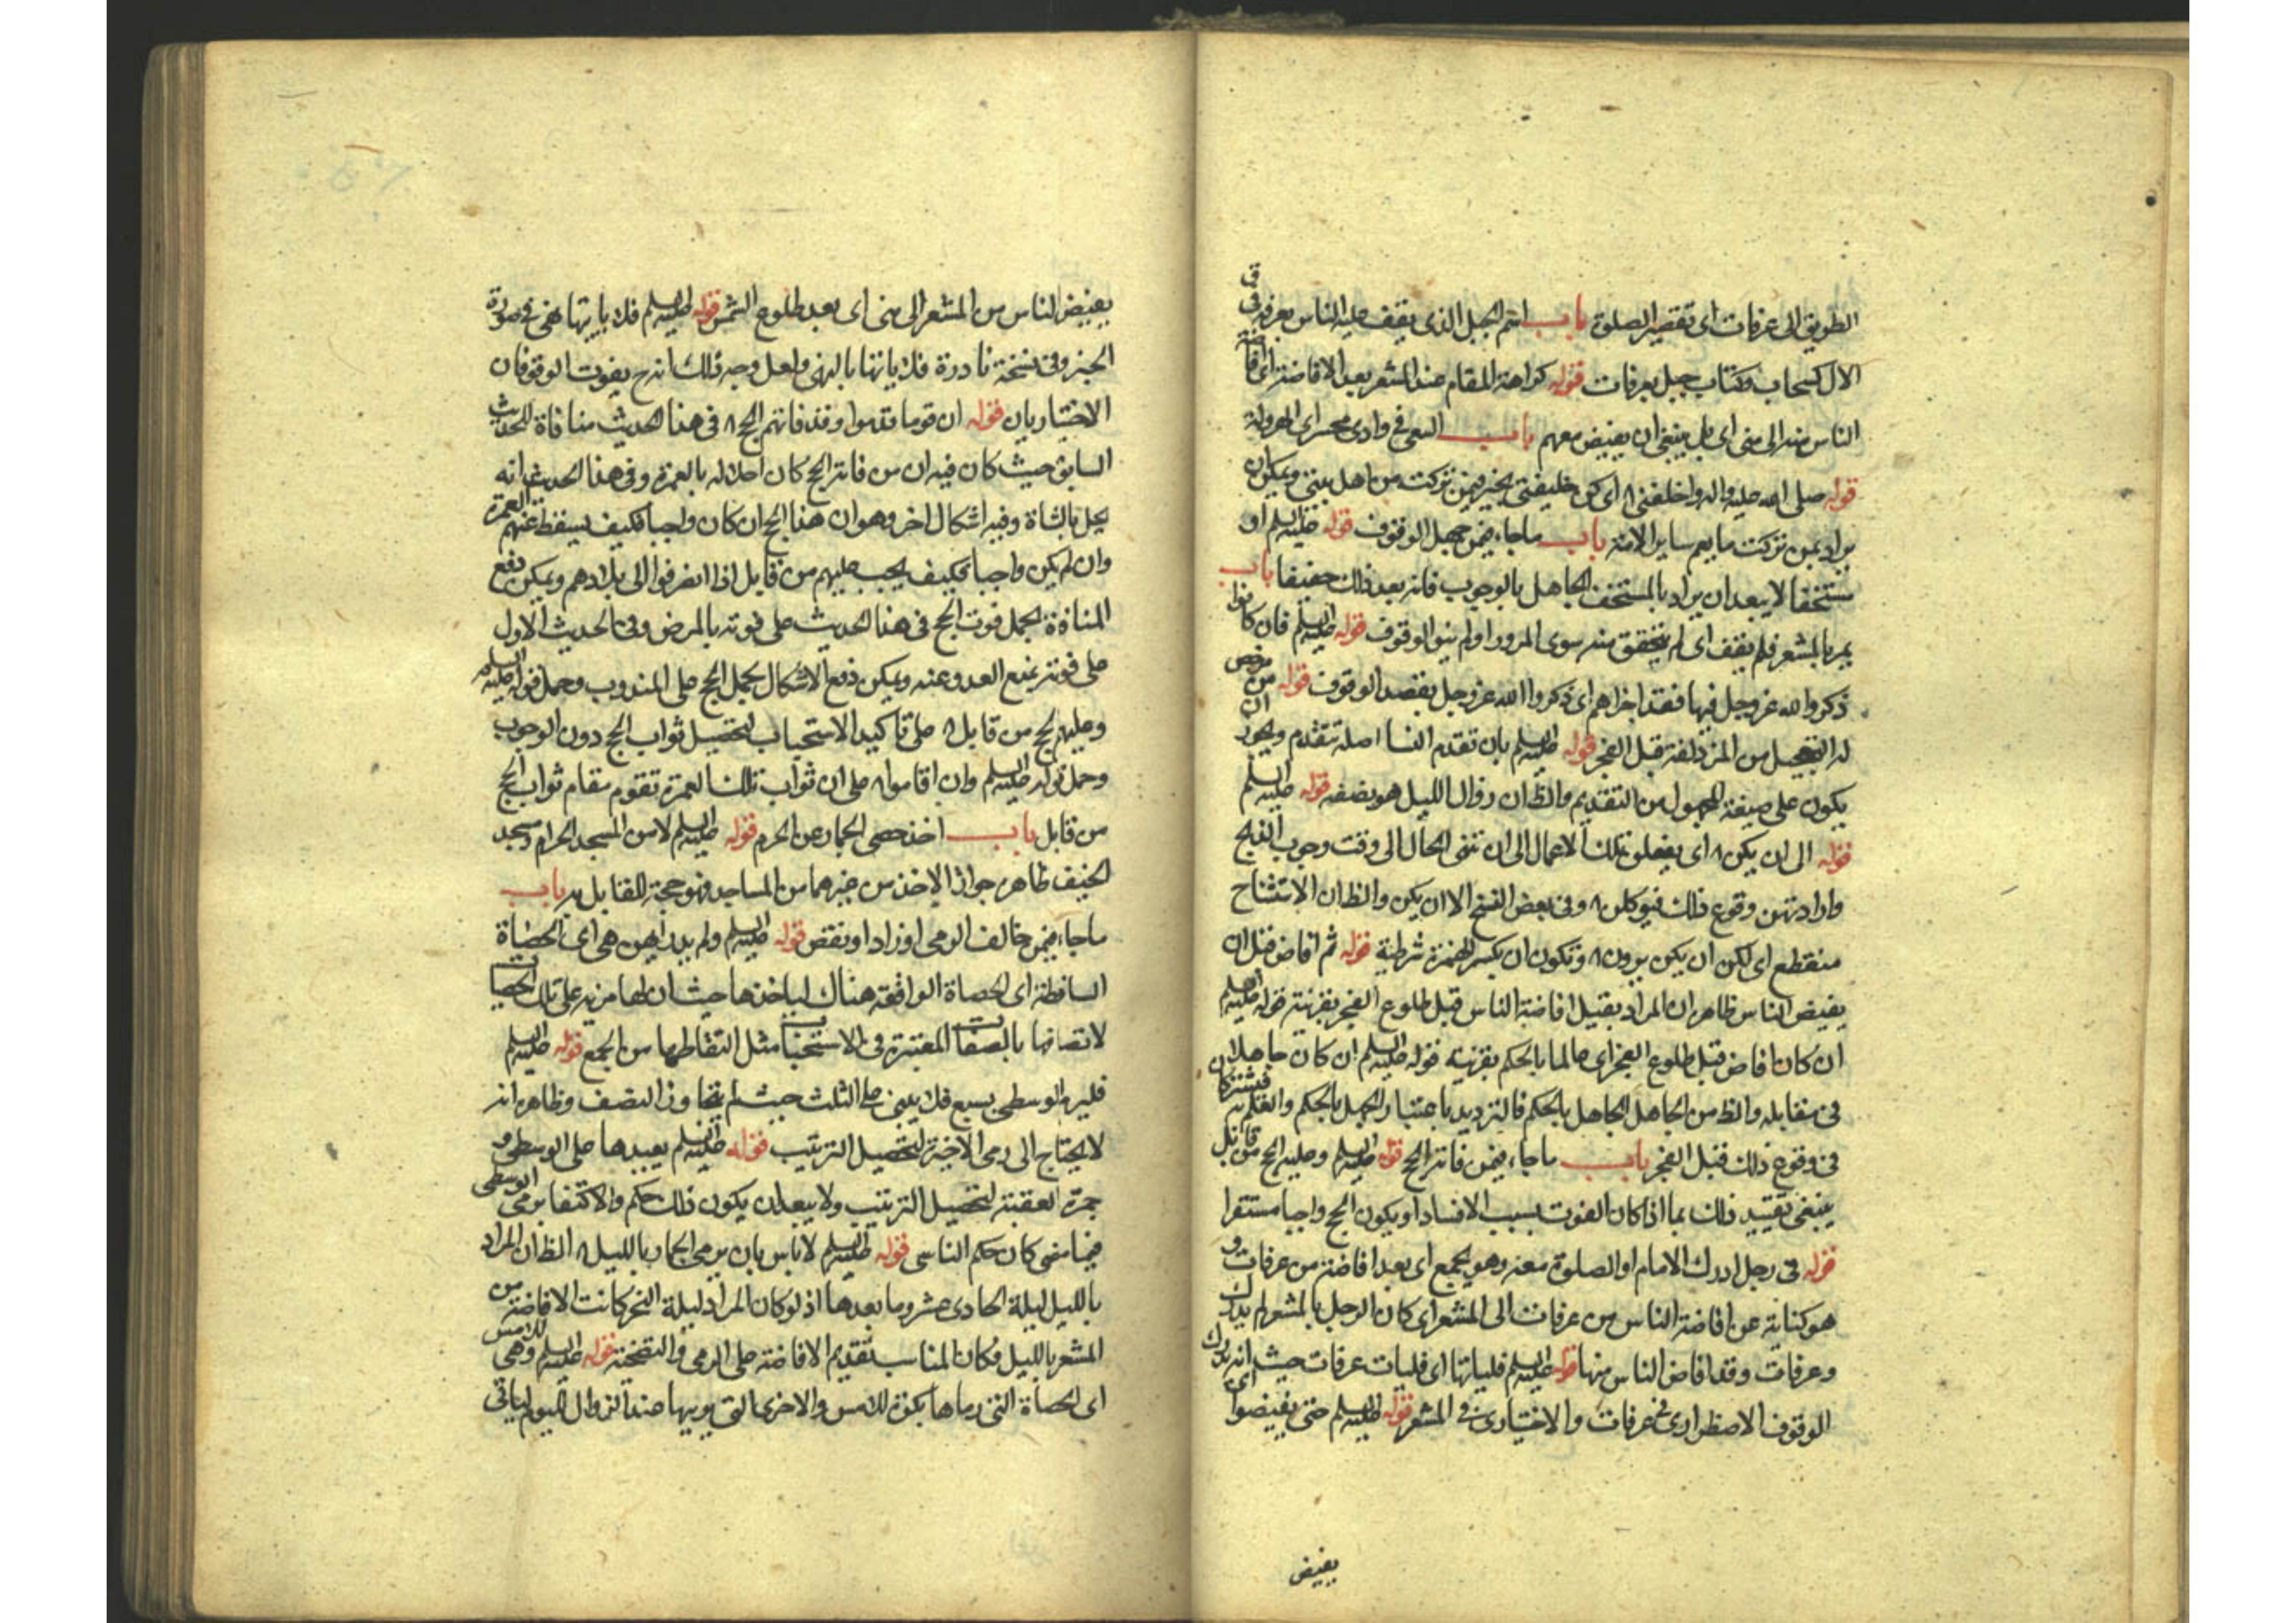 الطريق الى عرفات اى تقصير الصلوة باب اسم الجبل الذى يقف عليه الناس بعرفة ق فى
الال كسحاب وكتاب جبل بعرفات قوله كراهة المقام عند المشعر بعد الافاضة اى افاضة
الناس منه الى منى اى بل ينبغى ان يفيض معهم باب السعى فى وادى محسر اى الهرولة
قوله صلى الله عليه واله واخلفنى ٨ اى كن خليفتى بخير فيمن تركت من اهل بيتى ويمكن ان
يراد بمن تركت ما يعم ساير الامة باب ما جاء فيمن جهل الوقوف قوله عليه السلم او
مستخفا لا يبعد ان يراد بالمستخف الجاهل بالوجوب فانه يعد ذلك خفيفا باب
يمر بالمشعر فلم يقف اى لم يتحقق منه سوى المرور او لم ينو الوقوف قوله عليه السلم فان كانوا
ذكروا الله عز وجل فيها فقد اجزاهم اى ذكروا الله عز وجل بقصد الوقوف قوله من مرخص
له التعجيل من المزدلفة قبل الفجر قوله عليه السلم بان تقدم النسا اصله تتقدم ويجوز ان
يكون على صيغة المجهول من التقديم والظ ان زوال الليل هو نصفه قوله عليه السلم
قوله الى ان يكن ٨ اى يفعلن تلك الاعمال الى ان تنتهى الحال الى وقت وجوب الذبح
وارادتهن وقوع ذلك فيوكلن ٨ وفى بعض النسخ الا ان يكن والظ ان الاستثناء
منقطع اى لكن ان يكن يردن ٨ وتكون ان بكسر الهمزة شرطية قوله ثم افاض قبل ان
يفيض الناس ظاهره ان المراد بقبل افاضة الناس قبل طلوع الفجر بقرينة قوله عليه السلم
ان كان افاض قبل طلوع الفجر اى عالما بالحكم بقرينة قوله عليه السلم ان كان جاهلا
فى مقابله والظ من الجاهل الجاهل بالحكم فالترديد باعتبار الجهل بالحكم والعلم به فيشتركان
فى وقوع ذلك قبل الفجر باب ما جاء فيمن فاته الحج قوله عليه السلم وعليه الحج من قابل
ينبغى تقييد ذلك بما اذا كان الفوت بسبب الافساد او يكون الحج واجبا مستقرا
قوله فى رجل ادرك الامام او الصلوة معه وهو بجمع اى بعد افاضته من عرفات و
هو كناية عن افاضة الناس من عرفات الى المشعر اى كان الرجل بالمشعر لم يدرك
وعرفات وقد افاض الناس منها قوله عليه السلم فلياتها اى فليات عرفات حيث انه يدرك
الوقوف الاضطرارى فى عرفات والاختيارى فى المشعر قوله عليه السلم حتى يفيضوا اى
يفيض
يفيض الناس من المشعر الى منى اى بعد طلوع الشمس قوله عليه السلم فلا ياتيها نهى فى صورة
الخبر وفى نسخة نادرة فلا ياتها بالنهى ولعل وجه ذلك انه ح يفوت الوقوفان
الاختياريان قوله ان قوما قدموا وقد فاتهم الحج ٨ فى هذا الحديث منافاة للحديث
السابق حيث كان فيه ان من فاته الحج كان احلاله بالعمرة وفى هذا الحديث انه
يحل بالشاة وفيه اشكال اخر وهو ان هذا الحج ان كان واجبا فكيف يسقط عنهم العمرة
وان لم يكن واجبا فكيف يجب عليهم من قابل اذا انصرفوا الى بلادهم ويمكن دفع
المنافاة بحمل فوت الحج فى هذا الحديث على فوته بالمرض وفى الحديث الاول
على فوته بمنع العدو عنه ويمكن دفع الاشكال بحمل الحج على المندوب وحمل قوله عليه السلم
وعليهم الحج من قابل ٨ على تاكيد الاستحباب لتحصيل ثواب الحج دون الوجوب
وحمل قوله عليه السلم وان اقاموا ٨ على ان ثواب تلك العمرة تقوم مقام ثواب الحج
من قابل باب اخذ حصى الجمار عن الحرم قوله عليه السلم لا من المسجد الحرام ومسجد
الخيف ظاهره جواز الاخذ من غيرهما من المساجد فهو حجة للقايل به باب
ما جاء فيمن خالف الرمى او زاد او نقص قوله عليه السلم ولم يدر ايهن هى اى الحصاة
الساقطة اى الحصاة الواقعة هناك لياخذها حيث ان لها مزية على تلك الحصيات
لاتصافها بالصفات المعتبرة فى الاستحباب مثل التقاطها من الجمع قوله عليه السلم
فليرم الوسطى بسبع فلا يبنى على الثلث حيث لم يتجاوز النصف وظاهره انه
لا يحتاج الى رمى الاخيرة لتحصيل الترتيب قوله عليه السلم يعيدها على الوسطى و
جمرة العقبة لتحصيل الترتيب ولا يبعد ان يكون ذلك حكم والاكتفا برمى الوسطى
فيما مضى كان حكم الناسى قوله عليه السلم لا باس بان يرمى الجمار بالليل ٨ الظ ان المراد
بالليل ليلة الحادى عشر وما بعدها اذ لو كان المراد ليلة النحر كانت الافاضة من
المشعر بالليل فكان المناسب تقديم الافاضة على الرمى والتضحية قوله عليه السلم وهى للامس
اى الحصاة التى رماها بكرة للامس والاخرى التى يرميها عند الزوال لليوم لياتى